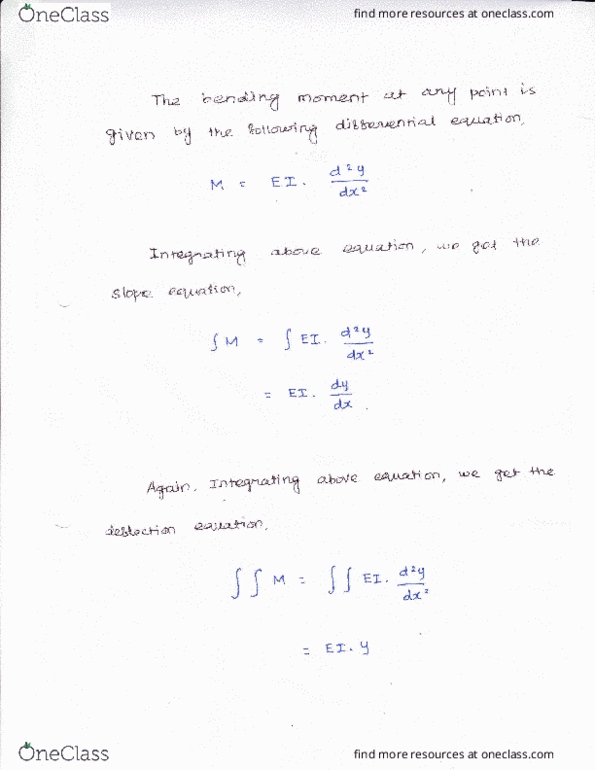 OneClass find more resources at oneclass.com
The bending moment at any point is
given by the following differential equation,
M = EI. d²y/dx²
Integrating above equation, we get the
slope equation,
∫ M = ∫ EI. d²y/dx²
= EI. dy/dx .
Again, Integrating above equation, we get the
deflection equation,
∫∫ M = ∫∫ EI. d²y/dx²
= EI. y
OneClass find more resources at oneclass.com